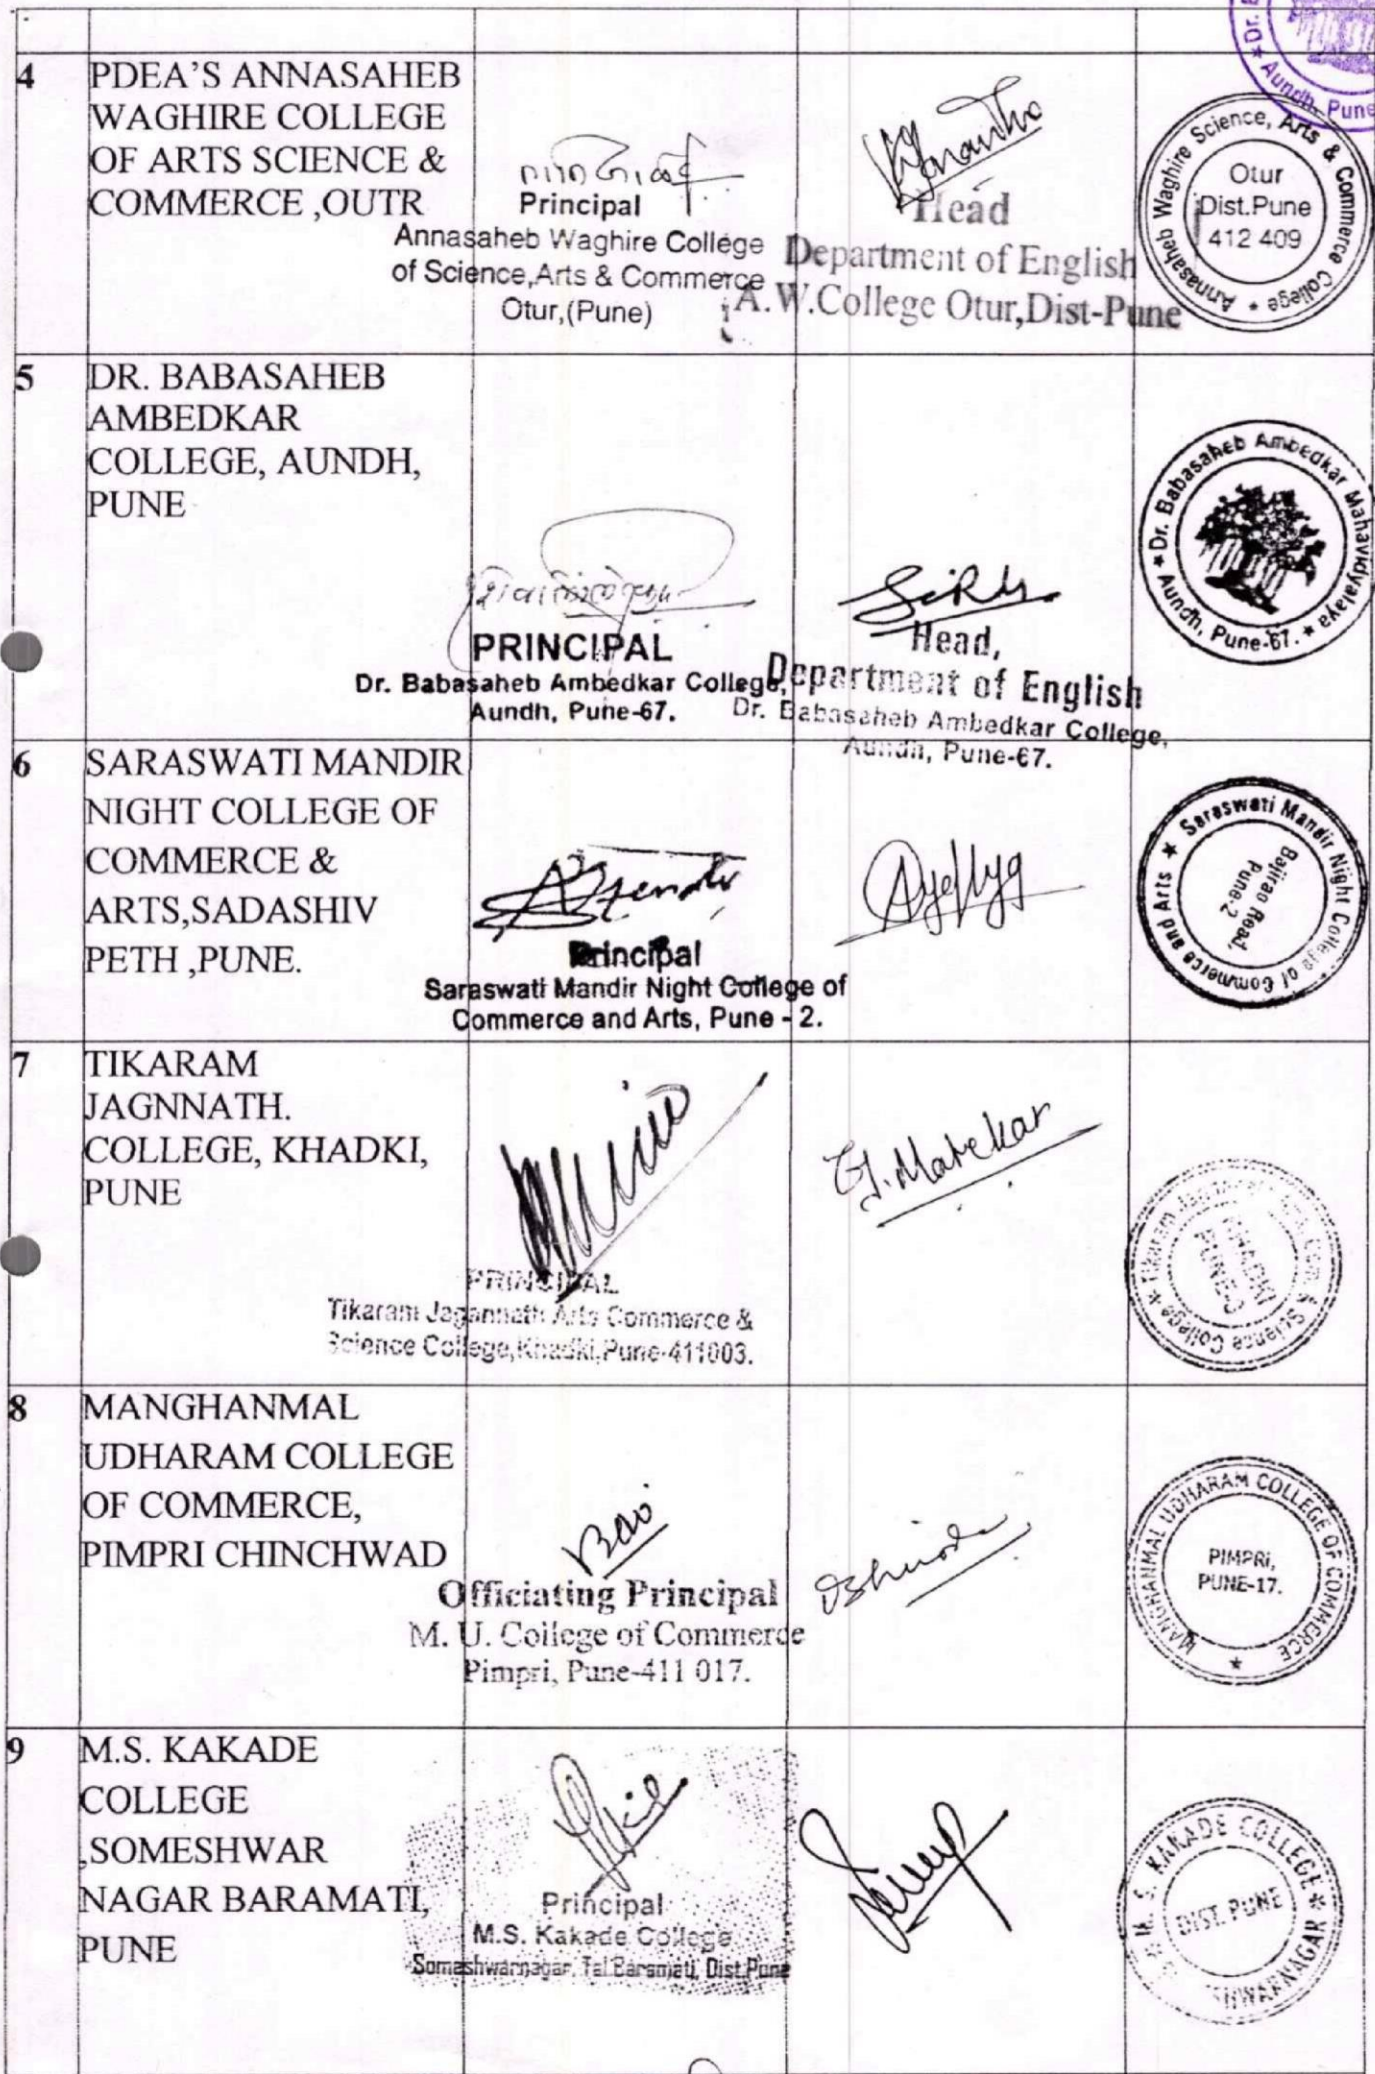 4
PDEA'S ANNASAHEB
WAGHIRE COLLEGE
OF ARTS SCIENCE &
COMMERCE ,OUTR
Principal
Annasaheb Waghire College
of Science,Arts & Commerce
Otur,(Pune)
Head
Department of English
A.W.College Otur,Dist-Pune
Annasaheb Waghire Science, Arts & Commerce College
Otur
Dist.Pune
412 409
Aundh, Pune
5
DR. BABASAHEB
AMBEDKAR
COLLEGE, AUNDH,
PUNE
PRINCIPAL
Dr. Babasaheb Ambedkar College,
Aundh, Pune-67.
Head,
Department of English
Dr. Babasaheb Ambedkar College,
Aundh, Pune-67.
Dr. Babasaheb Ambedkar Mahavidyalaya
Aundh, Pune-67.
6
SARASWATI MANDIR
NIGHT COLLEGE OF
COMMERCE &
ARTS,SADASHIV
PETH ,PUNE.
Principal
Saraswati Mandir Night College of
Commerce and Arts, Pune - 2.
Saraswati Mandir Night College of Commerce and Arts
Bajirao Road,
Pune-2
7
TIKARAM
JAGNNATH.
COLLEGE, KHADKI,
PUNE
PRINCIPAL
Tikaram Jagannath Arts Commerce &
Science College,Khadki,Pune-411003.
Matekar
Tikaram
& Science College
KHADKI
8
MANGHANMAL
UDHARAM COLLEGE
OF COMMERCE,
PIMPRI CHINCHWAD
Officiating Principal
M. U. College of Commerce
Pimpri, Pune-411 017.
MANGHANMAL UDHARAM COLLEGE OF COMMERCE
PIMPRI,
PUNE-17.
9
M.S. KAKADE
COLLEGE
,SOMESHWAR
NAGAR BARAMATI,
PUNE
Principal
M.S. Kakade College
Someshwarnagar, Tal.Baramati, Dist.Pune
M. S. KAKADE COLLEGE
DIST. PUNE